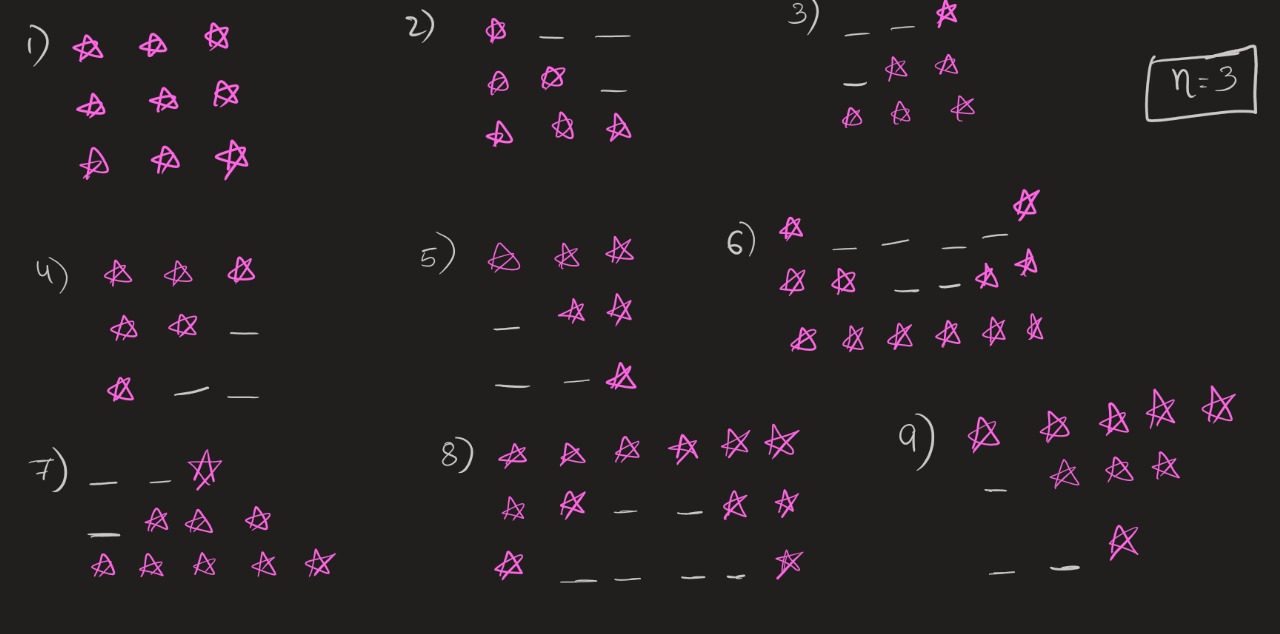 1) ☆ ☆ ☆
☆ ☆ ☆
☆ ☆ ☆
2) ☆ _ _
☆ ☆ _
☆ ☆ ☆
3) _ _ ☆
_ ☆ ☆
☆ ☆ ☆
n=3
4) ☆ ☆ ☆
☆ ☆ _
☆ _ _
5) ☆ ☆ ☆
_ ☆ ☆
_ _ ☆
6) ☆ _ _ _ _ ☆
☆ ☆ _ _ ☆ ☆
☆ ☆ ☆ ☆ ☆ ☆
7) _ _ ☆
_ ☆ ☆ ☆
☆ ☆ ☆ ☆ ☆
8) ☆ ☆ ☆ ☆ ☆ ☆
☆ ☆ _ _ ☆ ☆
☆ _ _ _ _ ☆
9) ☆ ☆ ☆ ☆ ☆
_ ☆ ☆ ☆
_ _ ☆